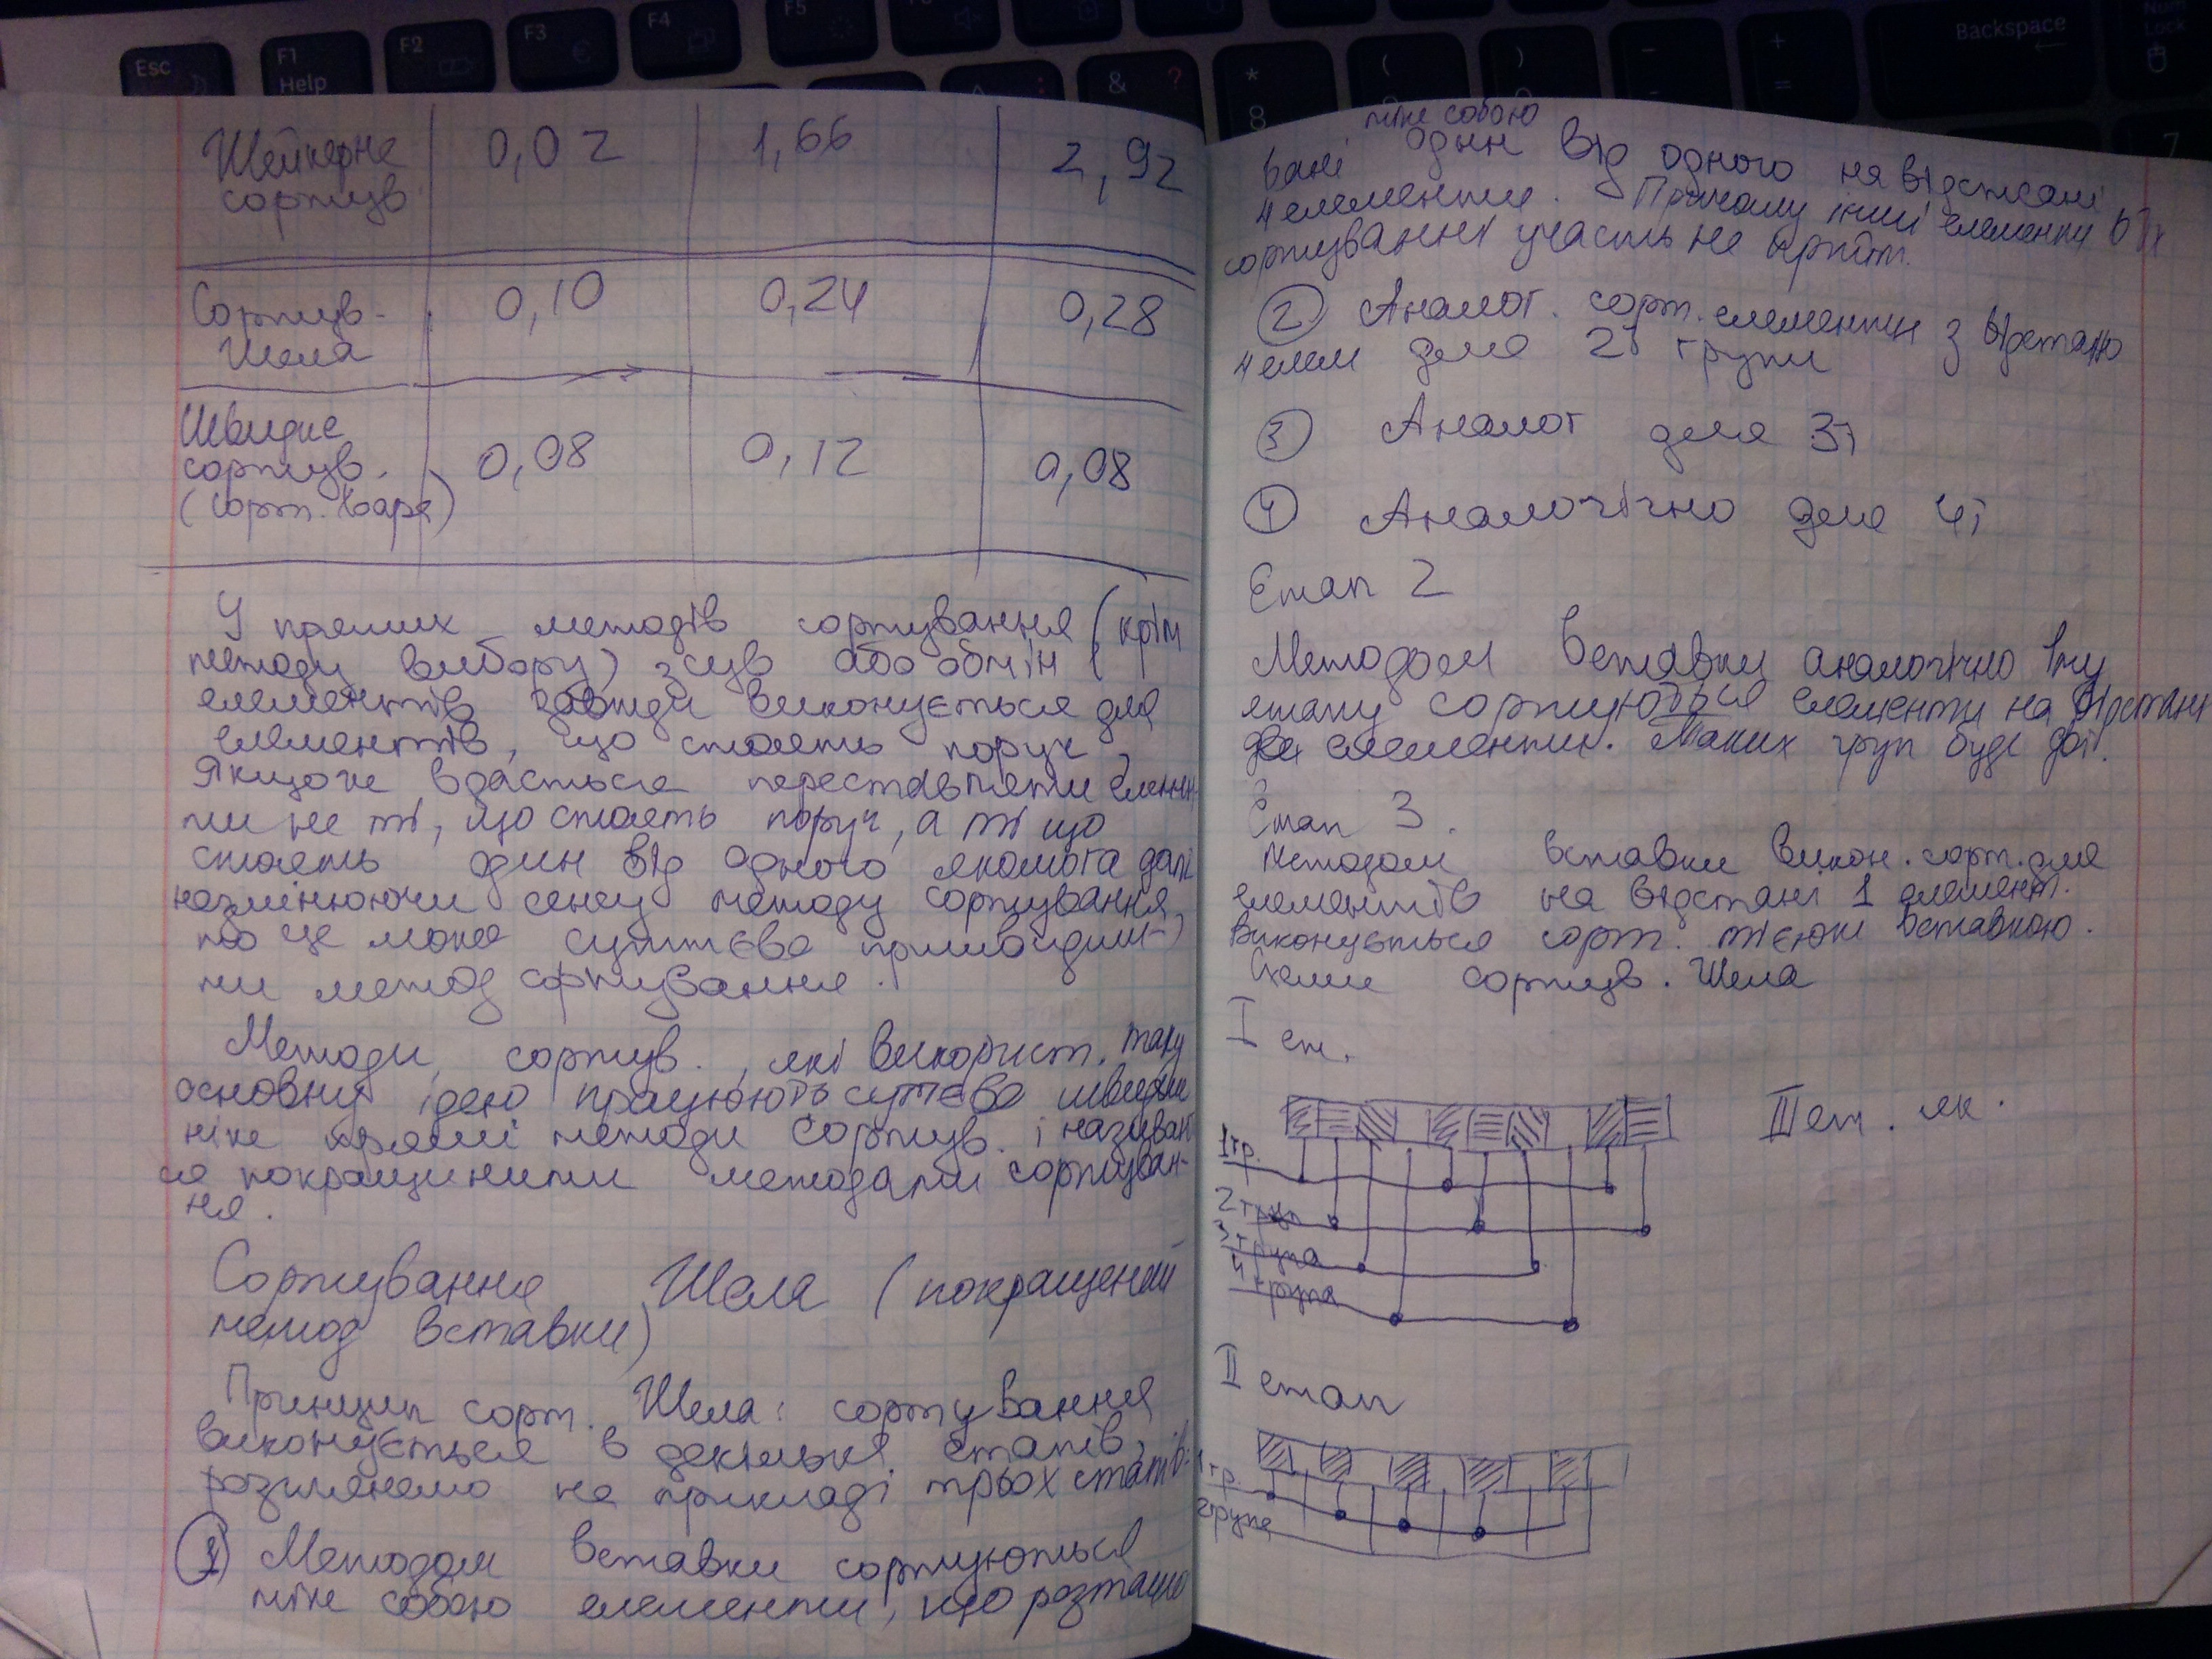 Esc
F1
Help
F2
F3
F4
F5
Backspace
Num
Lock
&
?
*
8
(
)
-
+
=
7
Шейкерне 0,02 1,66 2,92
сортув
Сортув- 0,10 0,24 0,28
Шела
Швидке
сортув. 0,08 0,12 0,08
(сорт. Хоара)
У прямих методів сортування (крім
методу вибору) зсув або обмін
елементів завжди виконується для
елементів, що стоять поруч,
Якщо же вдасться переставляти елемен-
ти не ті, що стоять поруч, а ті що
стоять один від одного якомога далі
незмінюючи сенсу методу сортування,
то це може суттєво пришвидши-
ти метод сортування.
Методи сортув., які використ. таку
основну ідею працюють суттєво швидше
ніже прямі методи сортув. і називают
ся покращиними методами сортуван-
ня.
Сортування Шела (покращений
метод вставки)
Принцип сорт. Шела: сортування
виконується в декілька етапів,
розглянемо на прикладі трьох етапів:
1 Методом вставки сортуються
між собою елементи, що розташо
між собою
вані один від одного на відстані
4 елементи. Причому інші елементи в їх
сортуванні участь не прийм.
2 Аналог. сорт. елементи з відстанню
4 елем для 2ї групи
3 Аналог для 3ї
4 Аналогічно для 4ї
Етап 2
Методом вставки аналогічно 1му
етапу сортуються елементи на відстані
два елементи. Таких груп буде дві.
Етап 3.
Методом вставки викон. сорт. для
елементів на відстані 1 елемент.
Виконується сорт. тією же вставкою.
Схеми сортув. Шела
I ет.
III ет. як.
1 гр.
2 груп
3 група
4 група
II етап
1 гр.
2 група